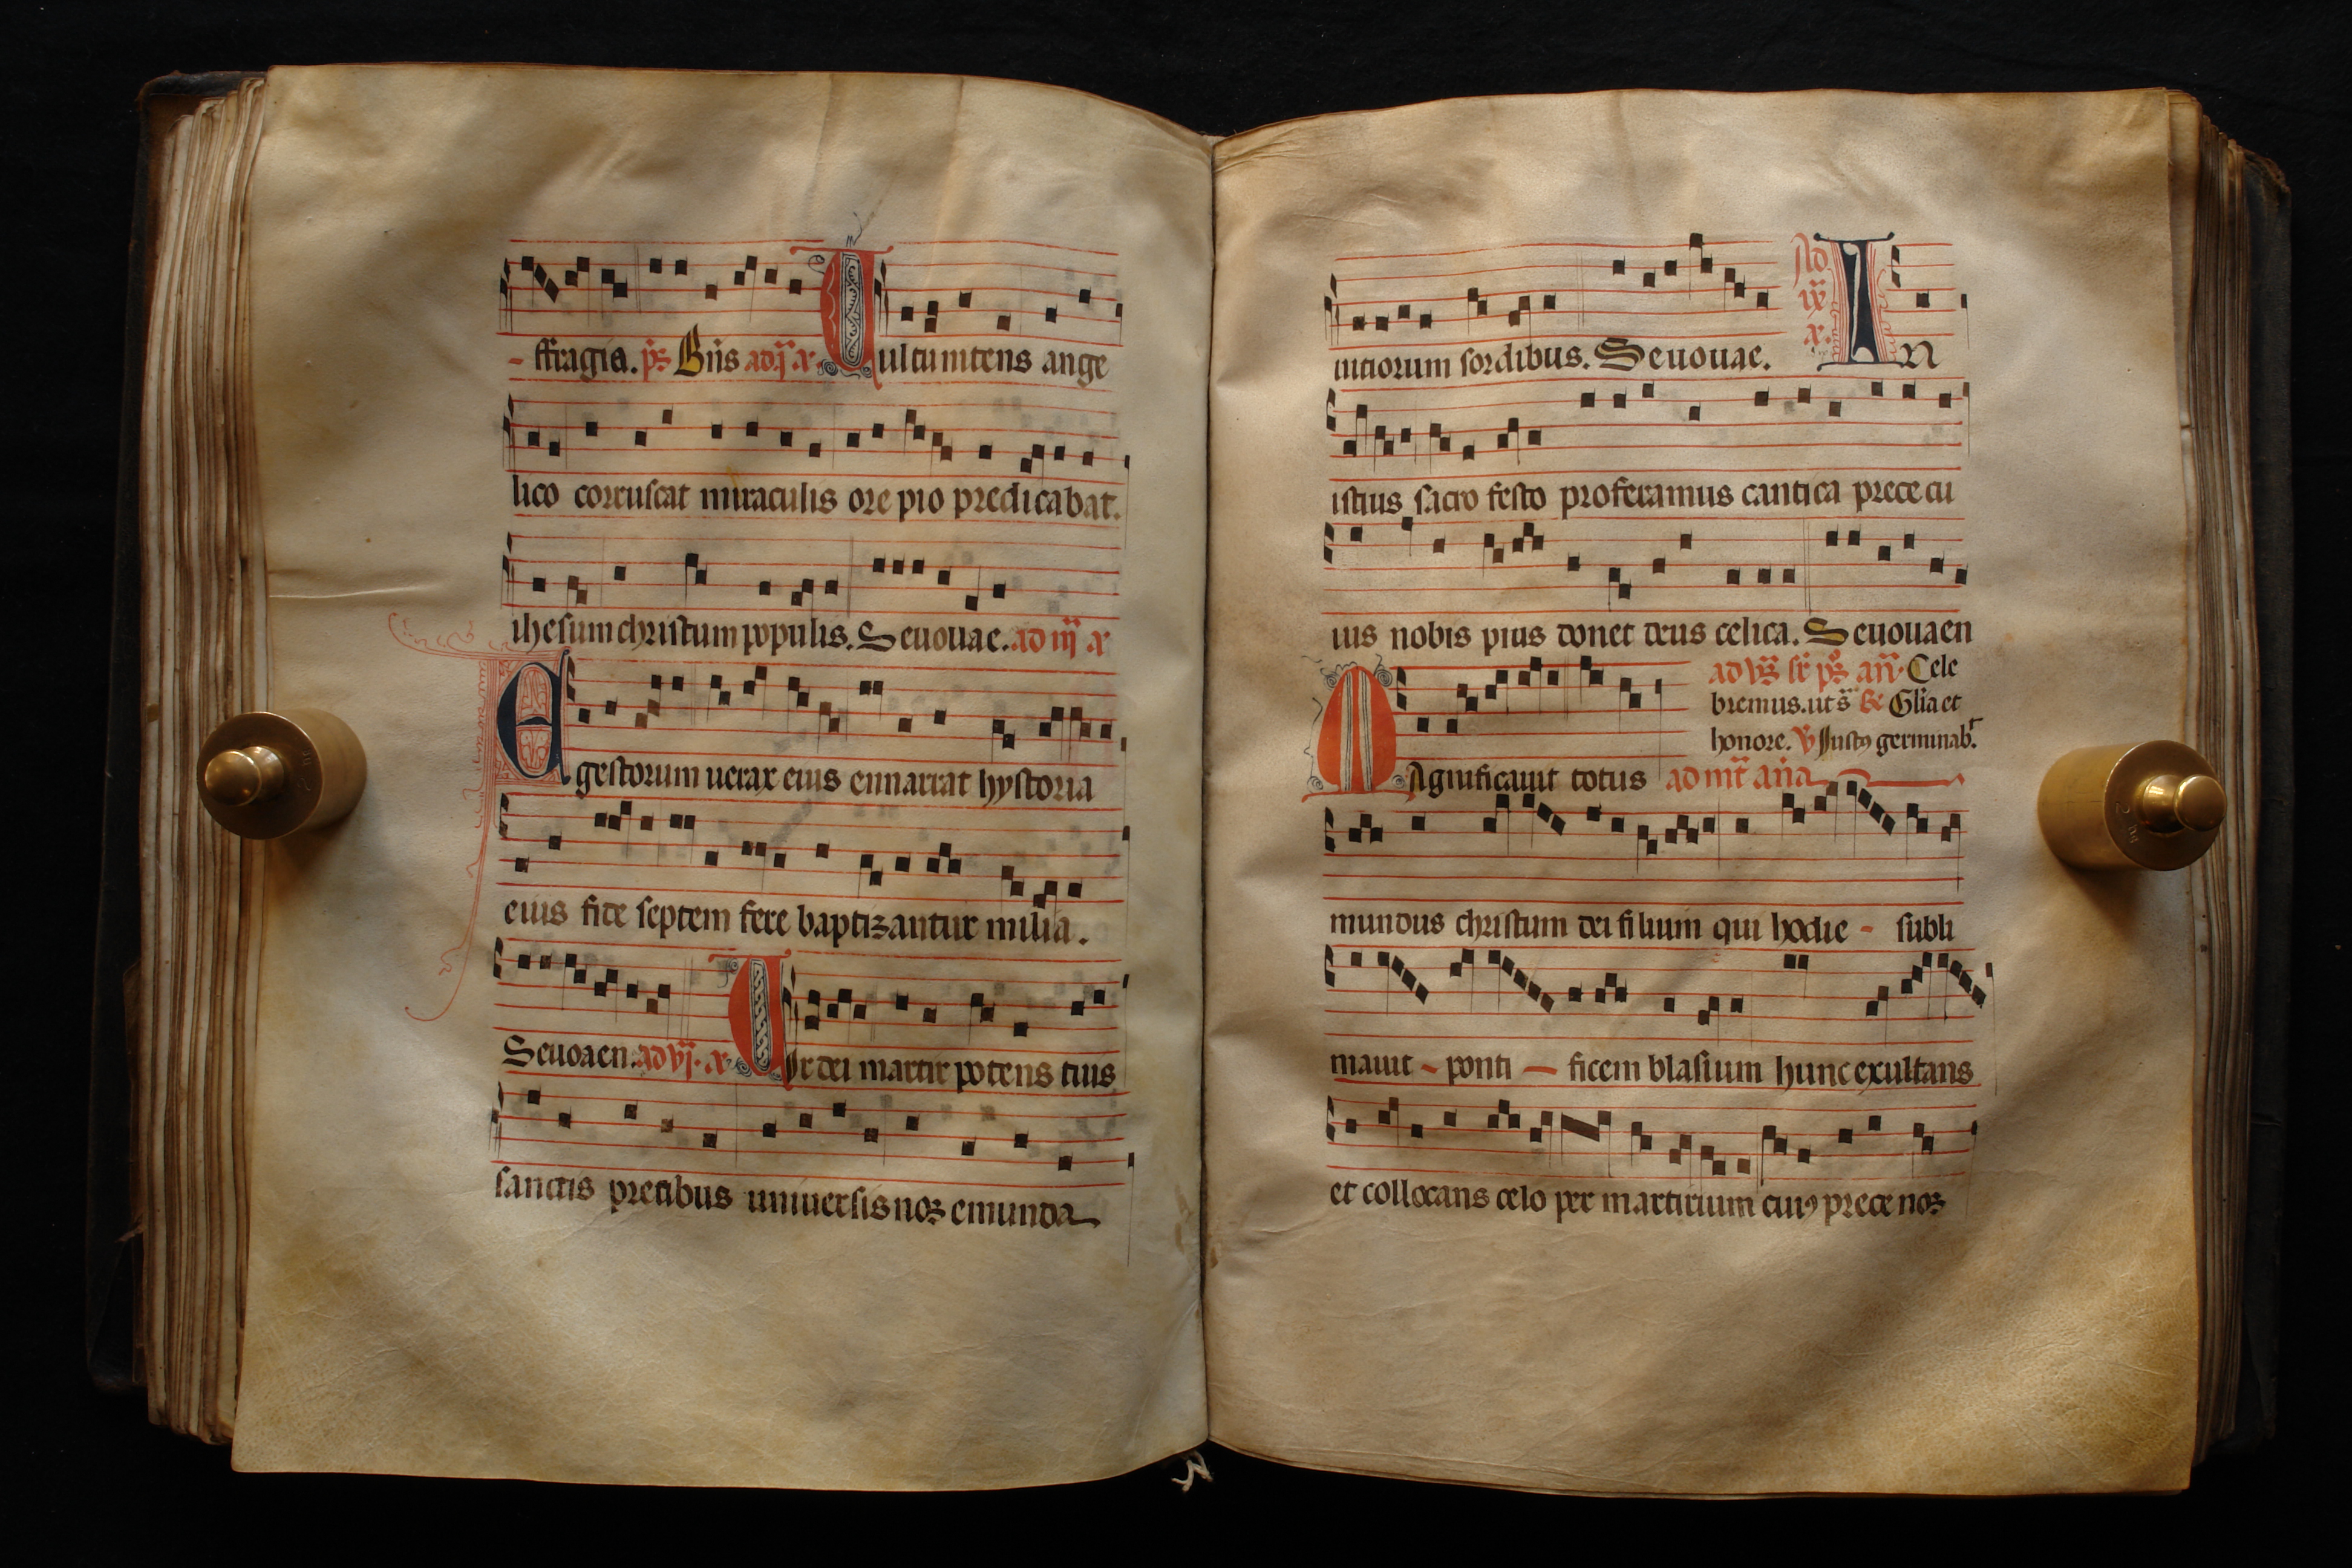 - ffragia. ps Btis ad j a Vultu nitens ange
lico corruscat miraculis ore pio predicabat.
ihesum christum populis. Seuouae. ad iij a
Gestorum uerax eius ennarrat hystoria
eius fide septem fere baptizantur milia.
Seuoaen. ad vj. a Vir dei martir potens tuis
sanctis precibus uniuersis nos emunda
uitiorum sordibus. Seuouae. Ad ix a. In
istius sacro festo proferamus cantica prece cu
ius nobis pius donet deus celica. Seuouaen
ad vs sr ps an. Cele
bremus. ut s R Glia et
honore. V Justus germinab.
Magnificauit totus ad mt ana
mundus christum dei filium qui hodie - subli
mauit - ponti - ficem blasium hunc exultans
et collocans celo per martirium cuius prece nos